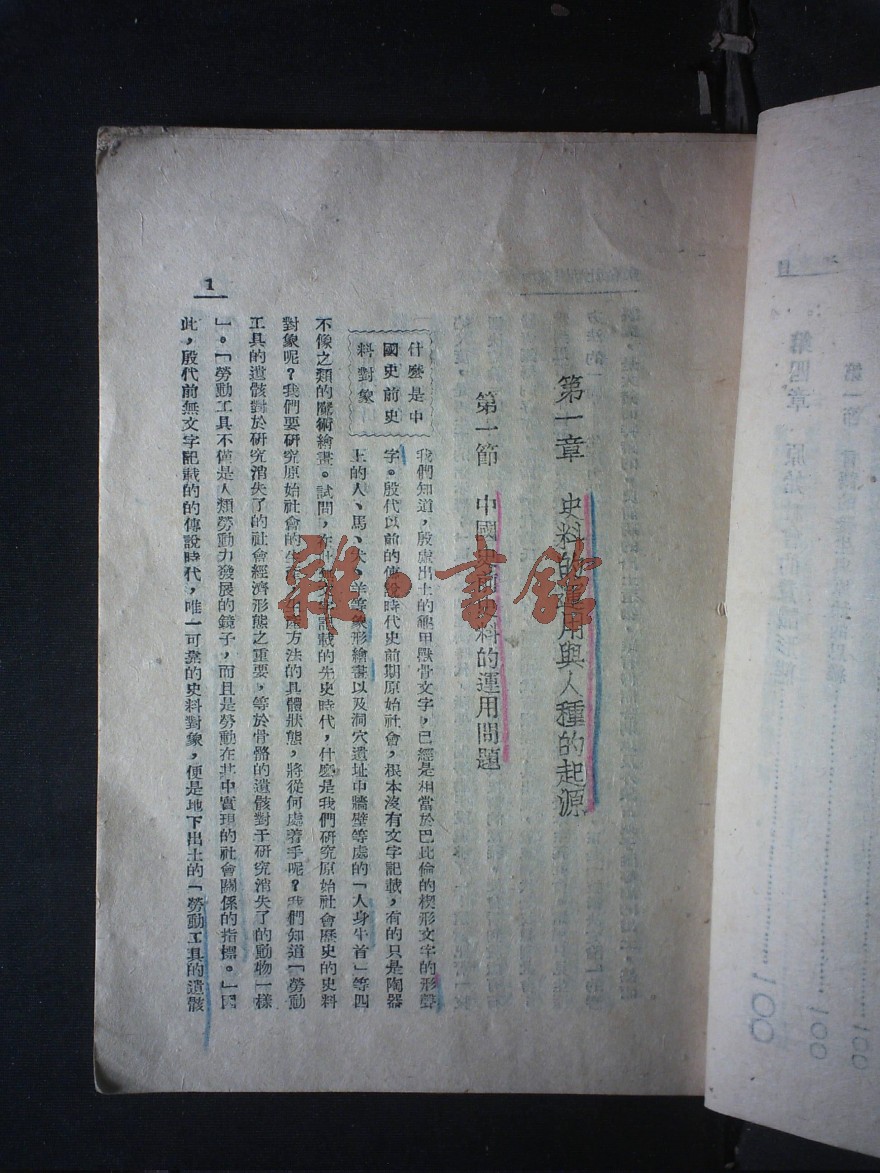 第一章 史料的運用與人種的起源
第一節 中國史前史料的運用問題
什麼是中
國史前史
料對象
我們知道，殷虛出土的龜甲獸骨文字，已經是相當於巴比倫的楔形文字的形聲
字。殷代以前的傳說時代史前期原始社會，根本沒有文字記載，有的只是陶器
上的人、馬、犬、羊等象形繪畫以及洞穴遺址中牆壁等處的「人身牛首」等四
不像之類的魔術繪畫。試問，在 記載的先史時代，什麼是我們研究原始社會歷史的史料
對象呢？我們要研究原始社會的生產 方法的具體狀態，將從何處着手呢？我們知道「勞動
工具的遺骸對於研究消失了的社會經濟形態之重要，等於骨骼的遺骸對于研究消失了的動物一樣
」。「勞動工具不僅是人類勞動力發展的鏡子，而且是勞動在其中實現的社會關係的指標。」因
此，殷代前無文字記載的的傳說時代，唯一可靠的史料對象，便是地下出土的「勞動工具的遺骸
1
雜·書館
目
第四章 原始
第一節
100
100
100